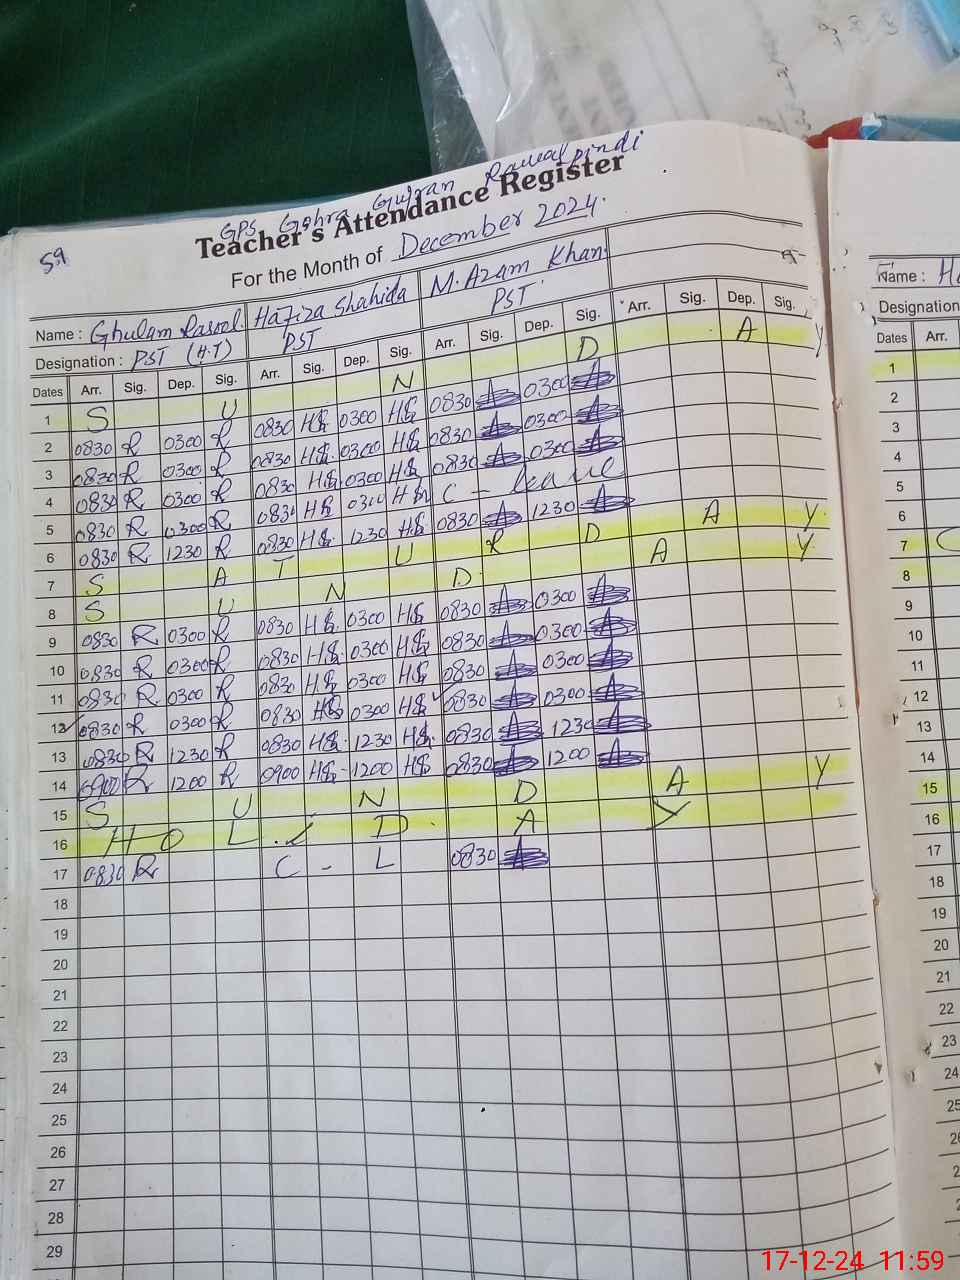 59
GPS Gohra Gujran Rawalpindi
Teacher's Attendance Register
For the Month of December 2024.
Name : Ghulam Rasool. Hafiza Shahida M. Azam Khan.
Designation : PST (H.T) PST PST
Dates Arr. Sig. Dep. Sig. Arr. Sig. Dep. Sig. Arr. Sig. Dep. Sig. Arr. Sig. Dep. Sig.
1 S U N D A Y
2 0830 R 0300 R 0830 HS 0300 HS 0830 0300
3 0830 R 0300 R 0830 HS 0300 HS 0830 0300
4 0830 R 0300 R 0830 HS 0300 HS 0830 0300
5 0830 R 0300 R 0830 HS 0300 HS C - leave
6 0830 R 1230 R 0830 HS 1230 HS 0830 1230
7 S A T U R D A Y
8 S U N D A Y
9 0830 R 0300 R 0830 HS 0300 HS 0830 0300
10 0830 R 0300 R 0830 HS 0300 HS 0830 0300
11 0830 R 0300 R 0830 HS 0300 HS 0830 0300
12 0830 R 0300 R 0830 HS 0300 HS 0830 0300
13 0830 R 1230 R 0830 HS 1230 HS 0830 1230
14 0900 R 1200 R 0900 HS 1200 HS 0830 1200
15 S U N D A Y
16 H O L I D A Y
17 0830 R C - L 0830
18
19
20
21
22
23
24
25
26
27
28
29
Name : Ha
Designation
Dates Arr.
1
2
3
4
5
6
7
8
9
10
11
12
13
14
15
16
17
18
19
20
21
22
23
24
25
17-12-24 11:59